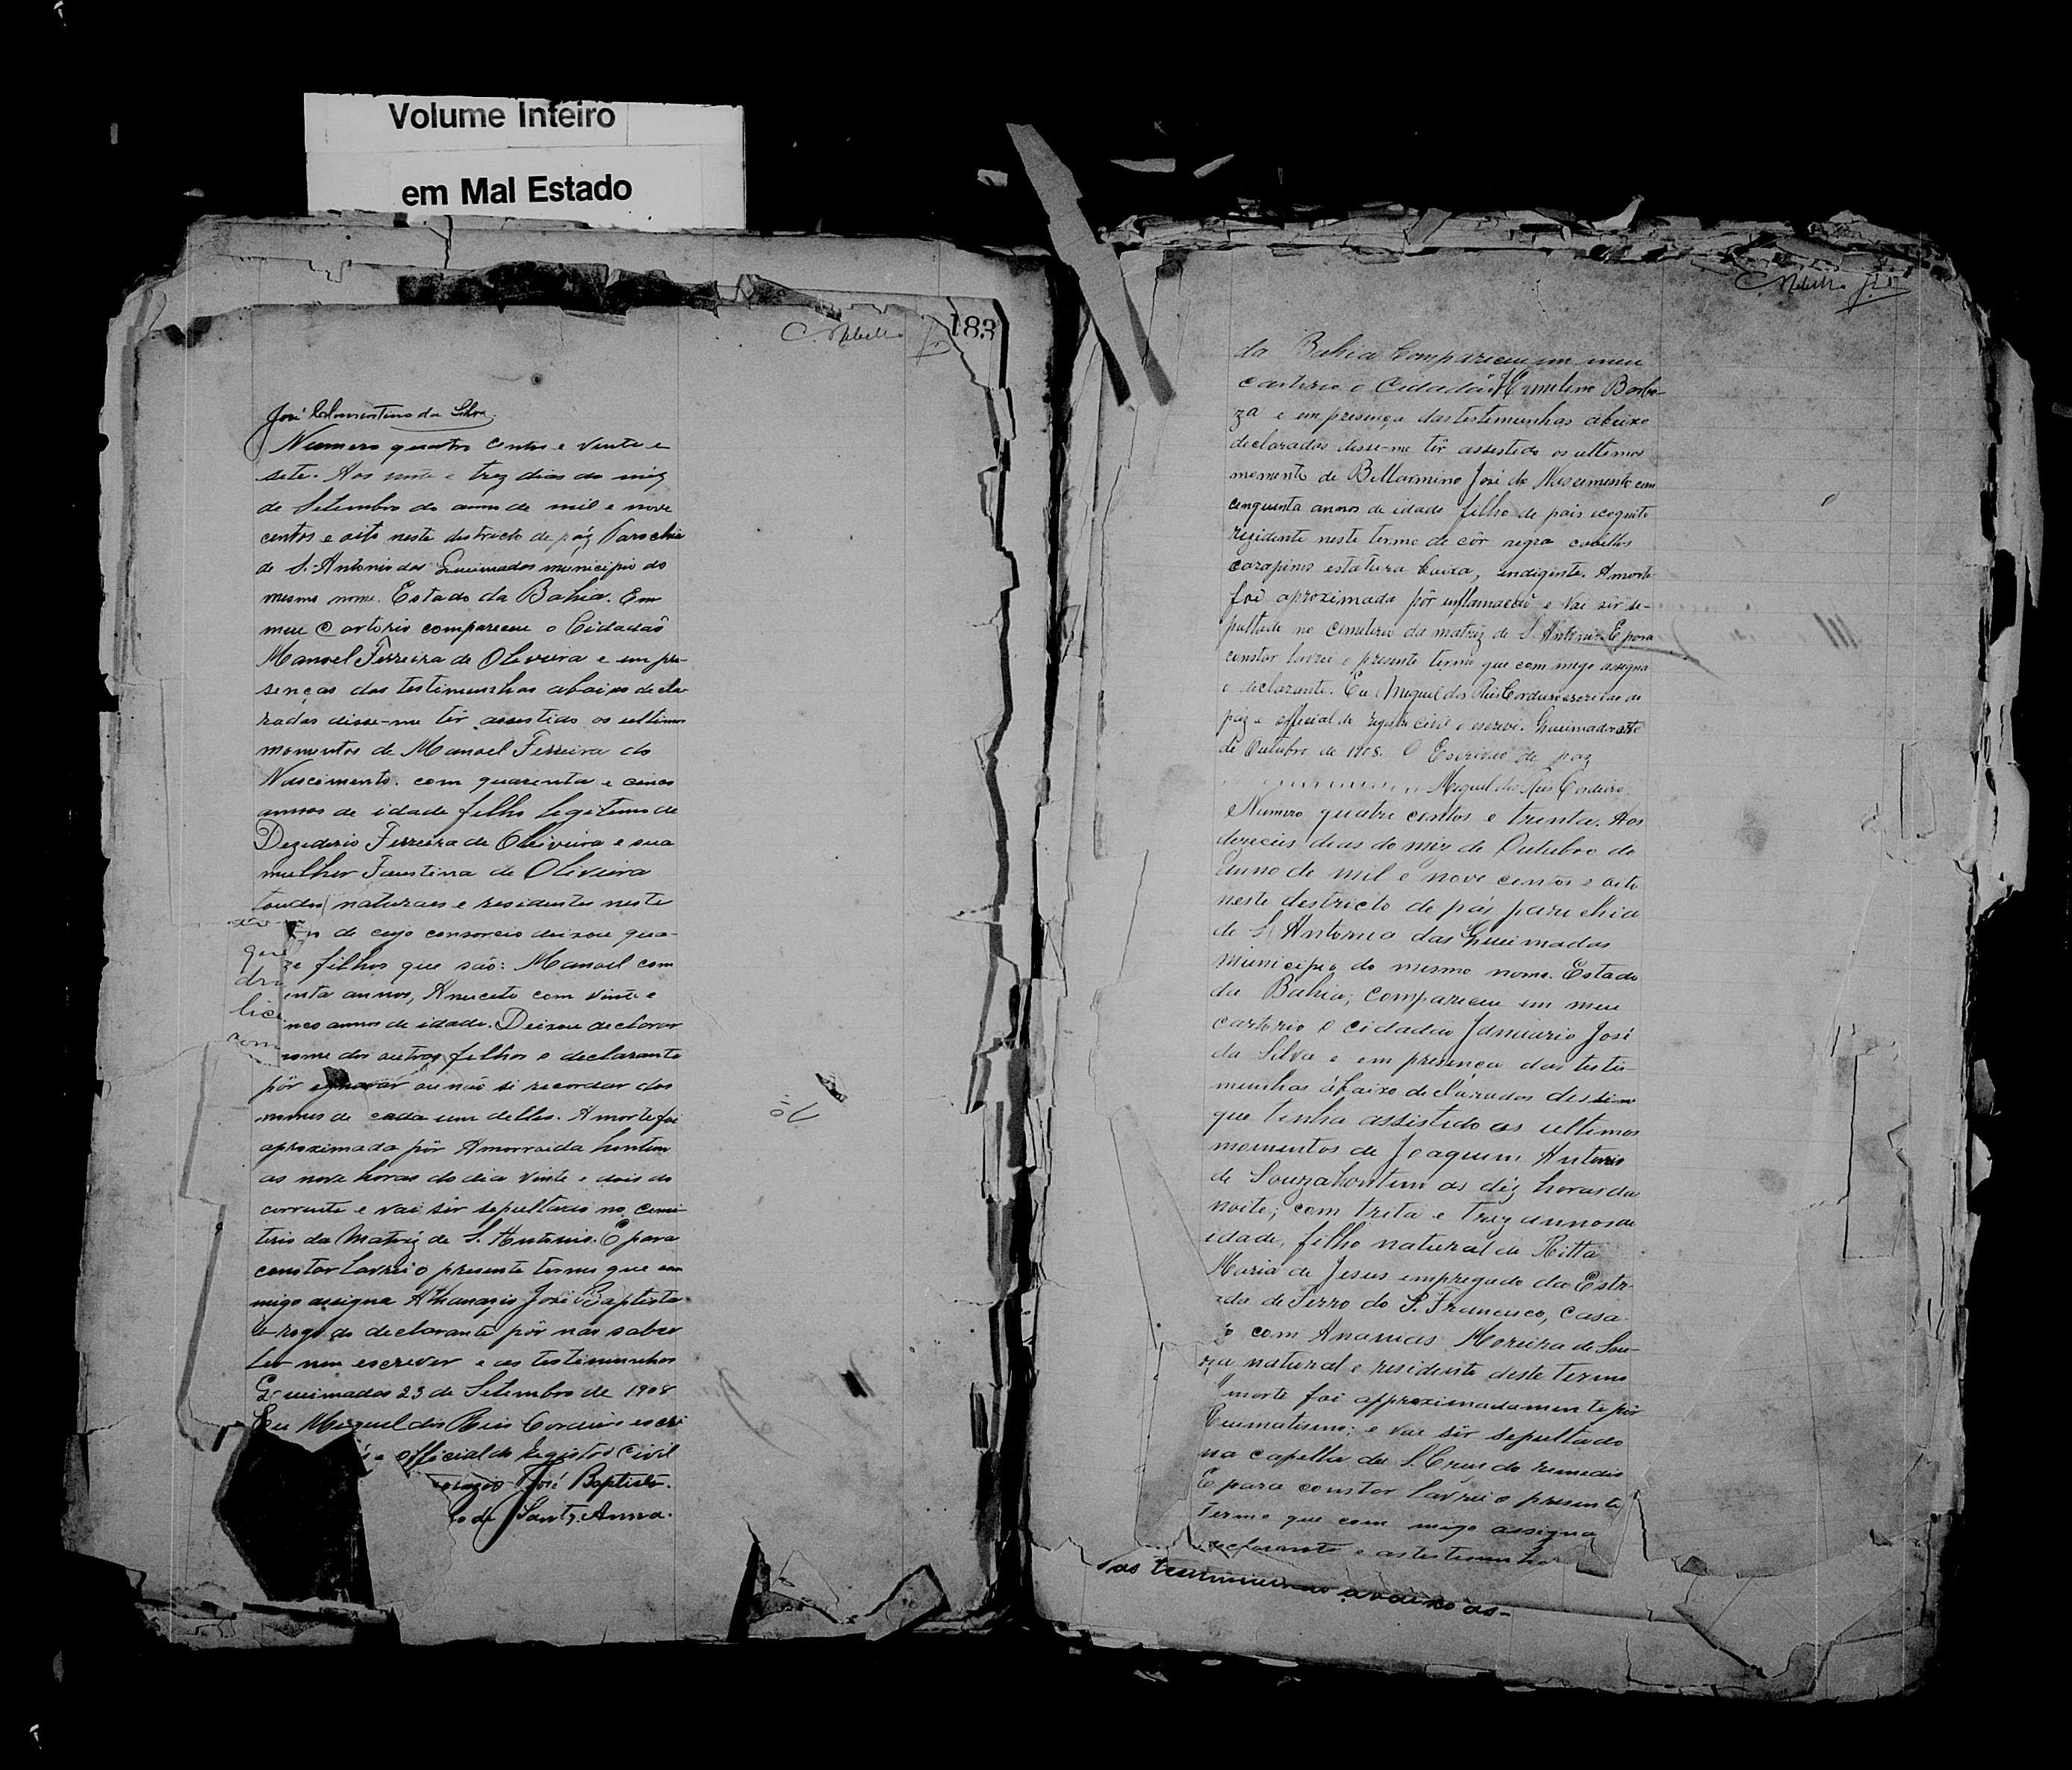 Volume Inteiro
em Mal Estado
183
José Clamentino da Silva
Numero quatro centos e vinte e
sete. Aos vinte e trez dias do mêz
de Setembro do anno de mil e nove
centos e oito neste destricto de páz Parochia
de S. Antonio das Queimadas municipio do
mesmo nome. Estado da Bahia. Em
meu Cartorio compareceu o Cidadaõ
Manoel Ferreira de Oliveira e em pre-
senças das testimunhas abaixo decla-
radas disse-me têr assestido os ultimos
momentos de Manoel Ferreira do
Nascimento. com quarenta e cinco
annos de idade filho legitimo de
Dezederio Ferreira de Oliveira e sua
mulher Faustina de Oliveira
naturaes e residentes neste
de cujo consorcio deixou qua-
ze filhos que são: Manoel com
inta annos, Anaceto com vinte e
inco annos de idade. Deixou declarar
nome dos outros filhos o declarante
pôr egnorar ou não si recordar dos
nomes de cada um delles. A morte foi
aproximada pôr Amorraida hontem
as nove horas do dia vinte e dois do
corrente e vai sêr sepultado no cemi-
terio da Matriz de S. Antonio. E para
constar lavrei o presente termo que com
migo assigna Athanazio José Baptista
a rogo do declarante pôr não saber
ler nem escrever e as testimunhas
Queimadas 23 de Setembro de 1908
Eu Miguel dos Reis Cordeiro escri
e official do Registro Civil
José Baptista.
de Sant'Anna.
da Bahia Compareceu em meu
cartorio o Cidadão Hermelino Barbo-
za e em presença das testemunhas abaixo
declaradas disse-me têr assestido os ultimos
momento de Bellarmino José do Nascimento com
cinquenta annos de idade filho de pais icognito
rezidente neste termo de côr negra cabellos
carapinos estatura baixa, endigente. A morte
foi aproximada pôr inflamacaõ e vai sêr se-
pultado no cemeterio da matriz de S. Antonio. E para
constar lavrei o presente termo que com migo assigna
o declarante. Eu Miguel dos Reis Cordeiro escrivão de
paz e official do registro civil o escrevi. Queimadas
de Outubro de 1908. O Escrivão de paz
Miguel dos Reis Cordeiro
Numero quatro centos e trenta. Aos
dezeseis dias do mêz de Outubro do
anno de mil e nove centos e oito
neste destricto de páz parochia
de S. Antonio das Queimadas
municipio do mesmo nome. Estado
da Bahia; compareceu em meu
cartorio o cidadão Januario José
da Silva e em presença das teste-
munhas abaixo declaradas disse-me
que tinha assistido os ultimos
momentos de Joaquim Antonio
de Souza hontem as déz horas da
noite; com trita e trez annos de
idade, filho natural de Ritta
Maria de Jesus empregado da Estr-
ada de Ferro do S. Francisco, casa-
o com Ananias Moreira de Sou-
za natural e residente deste termo
morte foi approximadamente pôr
Reumatismo; e vai sêr sepultado
na capella da S. Crus do remedio
E para constar lavrei o presente
termo que com migo assigna
declarante e as testemunhas
as
abaixo as-